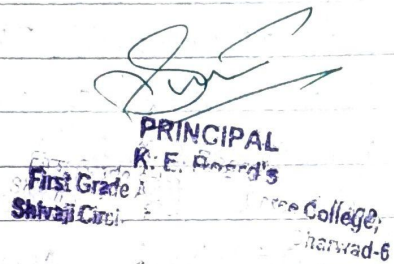 PRINCIPAL
K. E. Board's
First Grade A
College,
Shivaji Circl
harwad-6